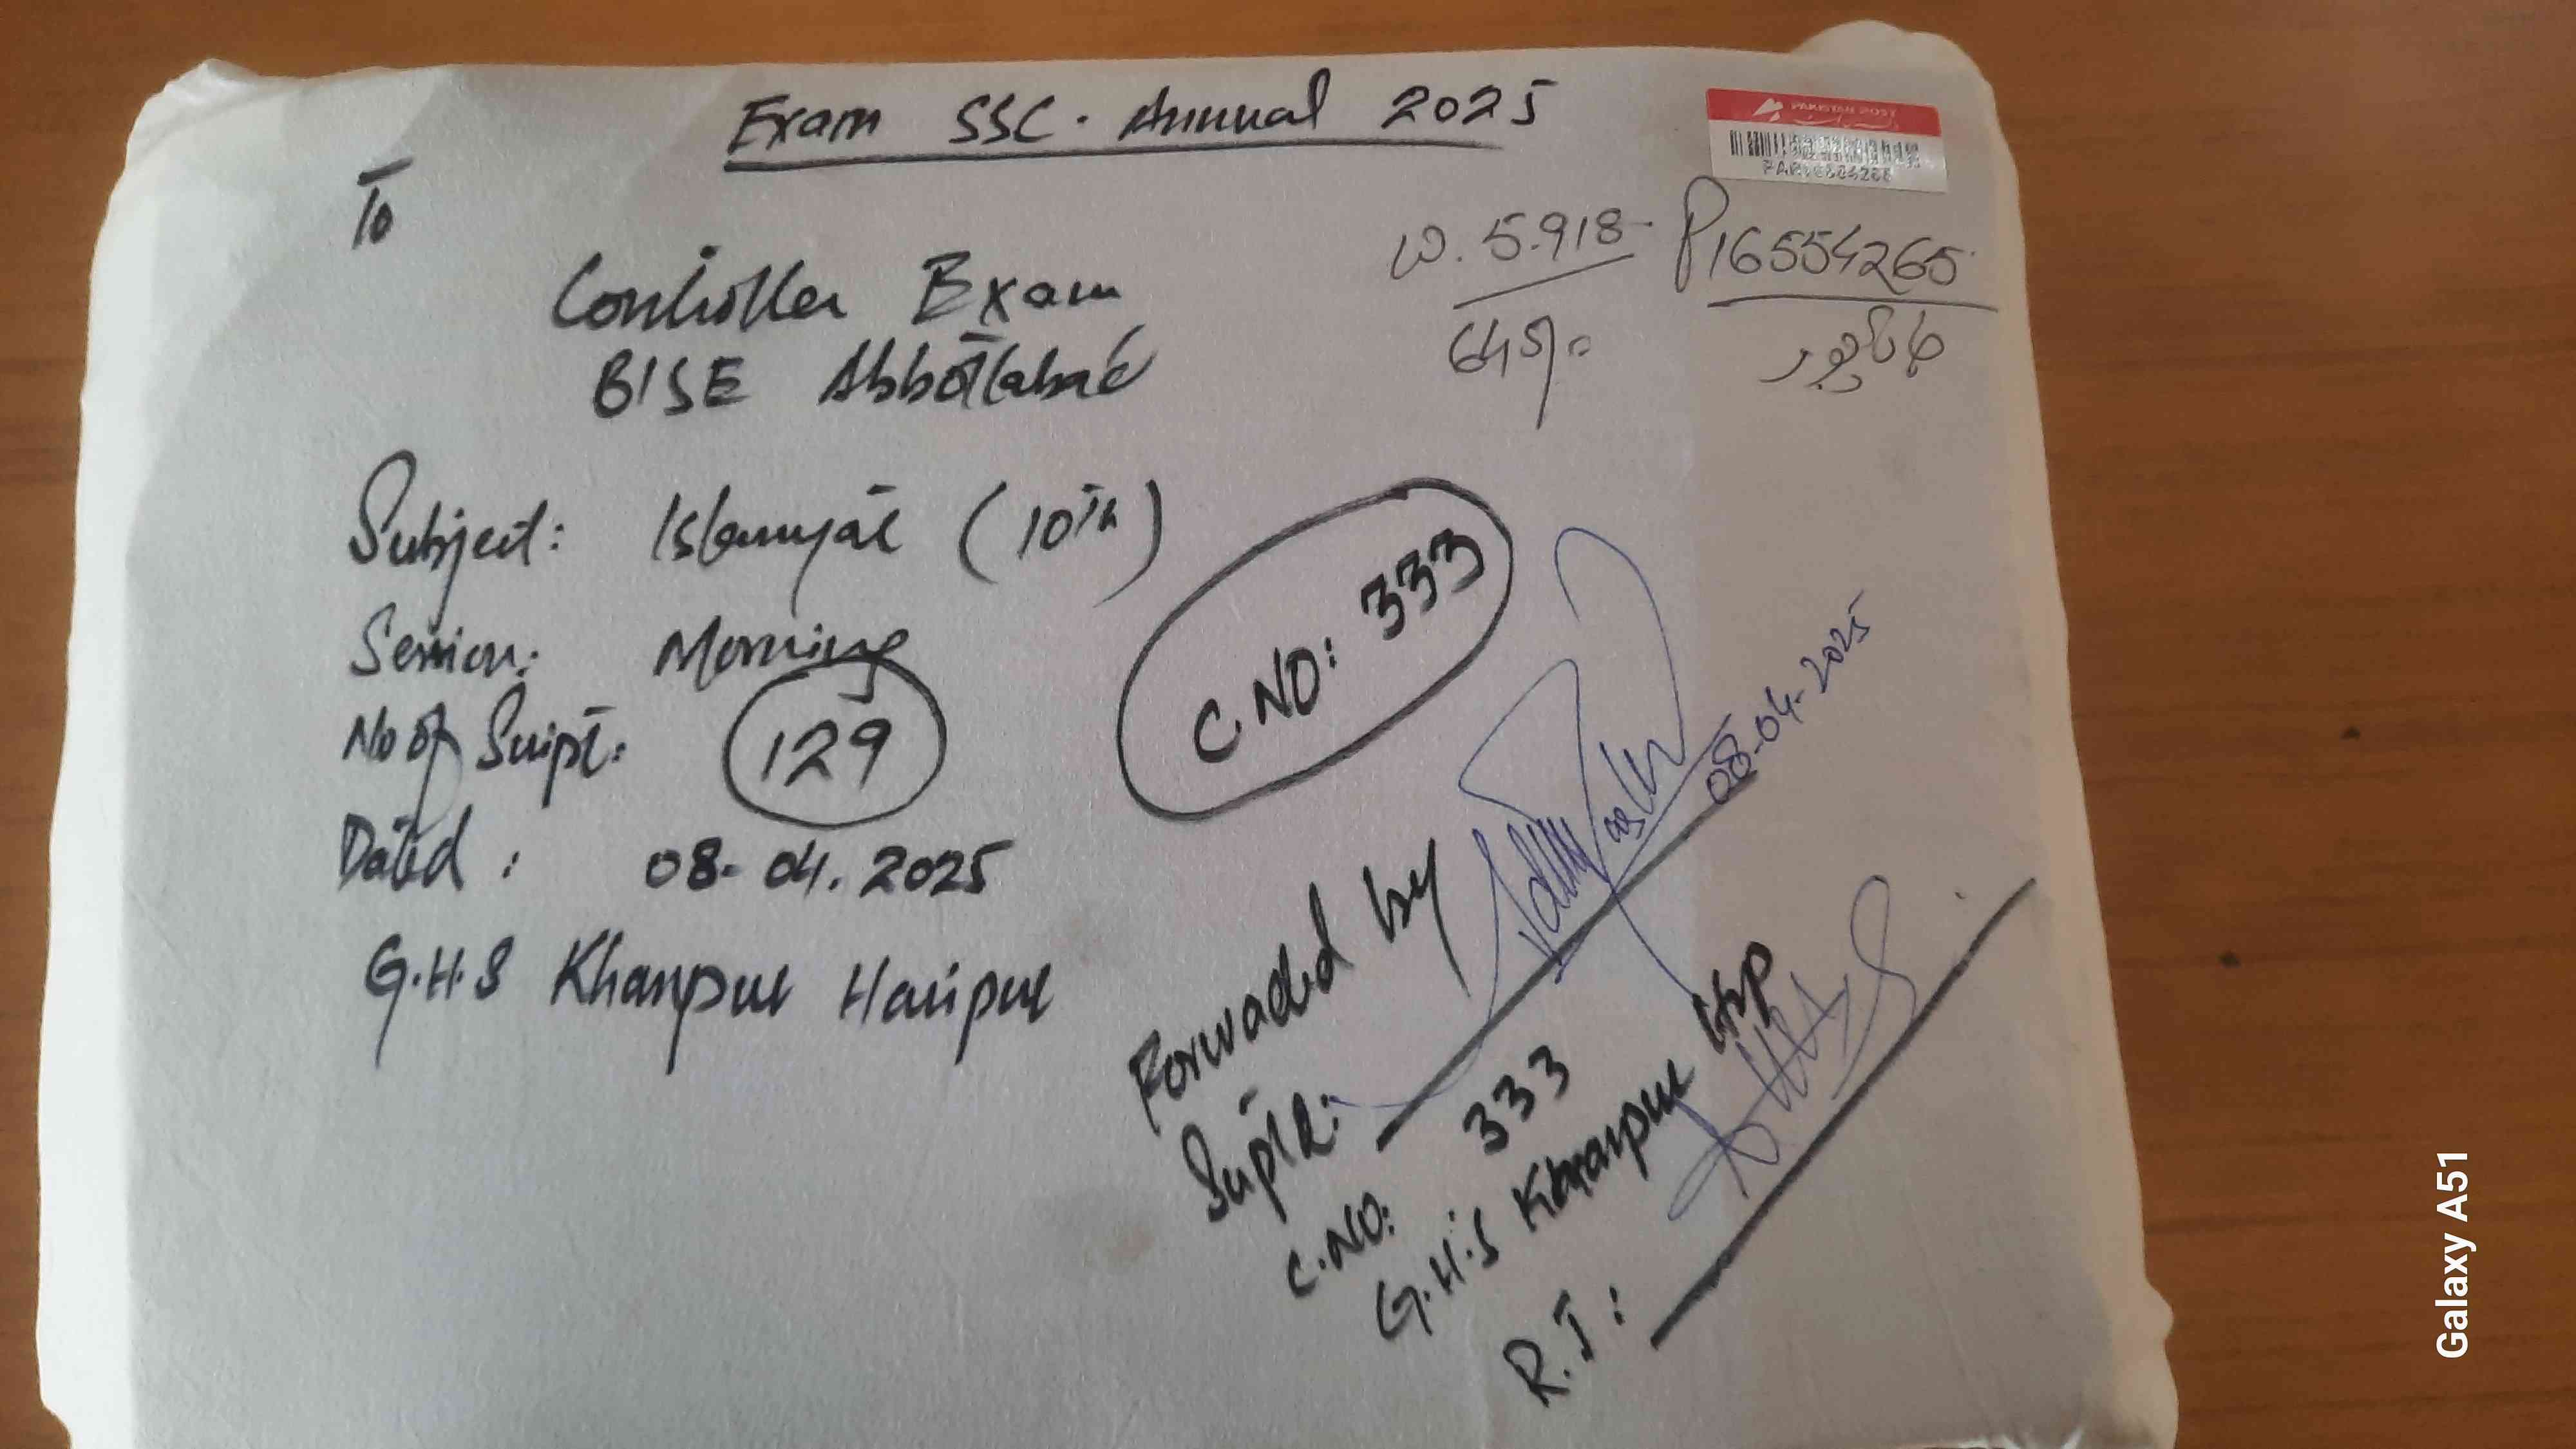 Exam SSC. Annual 2025
PAKISTAN POST
To
W. 5.918
P16554265
Controller Exam
645/-
خانپور
BISE Abbottabad
Subject: Islamyat (10th)
C.NO: 333
Session: Morning
No of Script: 129
Dated: 08-04.2025
08-04-2025
G.H.S Khanpur Haripur
Forwaded by
Suptd:
C.NO: 333
G.H.S Khanpur Hrp
R.I:
Galaxy A51